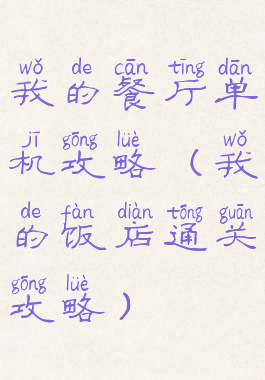 wǒ de cān tīng dān
我的餐厅单
jī gōng lüè wǒ
机攻略（我
de fàn diàn tōng guān
的饭店通关
gōng lüè
攻略）